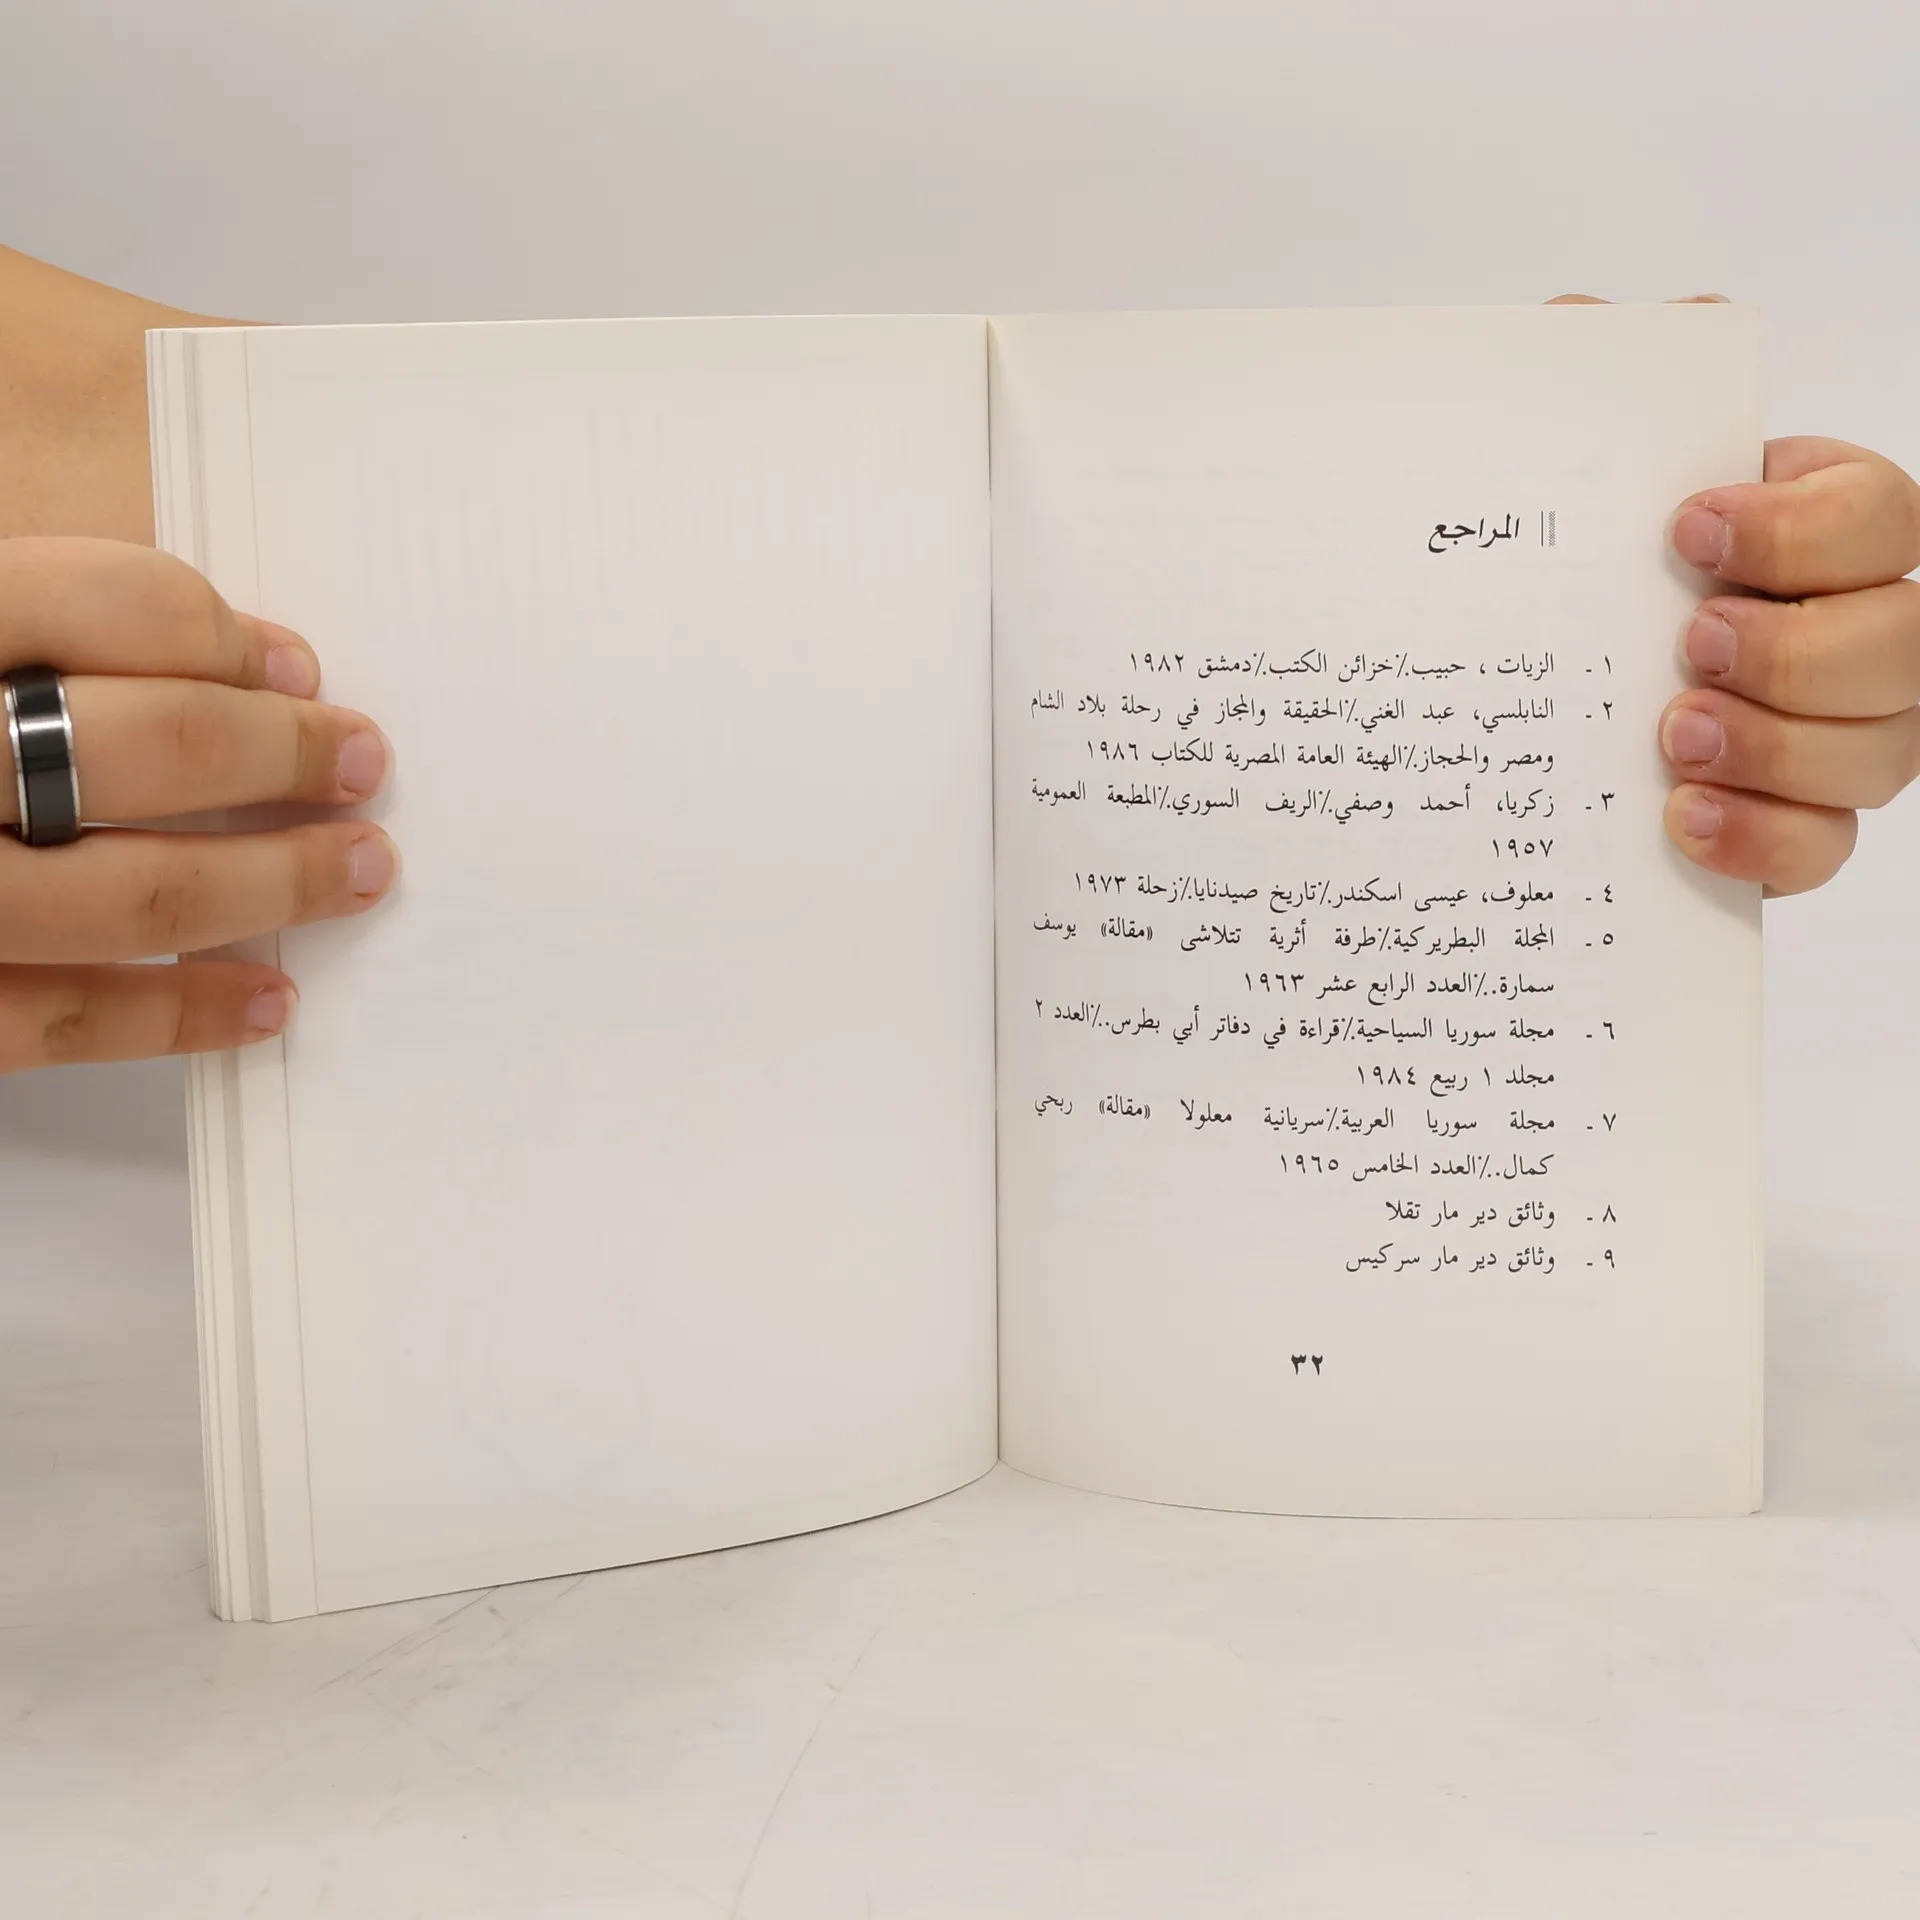 المراجع
١ ـ الزيات ، حبيب٪خزائن الكتب٪دمشق ١٩٨٢
٢ ـ النابلسي، عبد الغني٪الحقيقة والمجاز في رحلة بلاد الشام
ومصر والحجاز٪الهيئة العامة المصرية للكتاب ١٩٨٦
٣ ـ زكريا، أحمد وصفي٪الريف السوري٪المطبعة العمومية
١٩٥٧
٤ ـ معلوف، عيسى اسكندر٪تاريخ صيدنايا٪زحلة ١٩٧٣
٥ ـ المجلة البطريركية٪طرفة أثرية تتلاشى «مقالة» يوسف
سمارة.٪العدد الرابع عشر ١٩٦٣
٦ ـ مجلة سوريا السياحية٪قراءة في دفاتر أبي بطرس.٪العدد ٢
مجلد ١ ربيع ١٩٨٤
٧ ـ مجلة سوريا العربية٪سريانية معلولا «مقالة» ربحي
كمال.٪العدد الخامس ١٩٦٥
٨ ـ وثائق دير مار تقلا
٩ ـ وثائق دير مار سركيس
٣٢